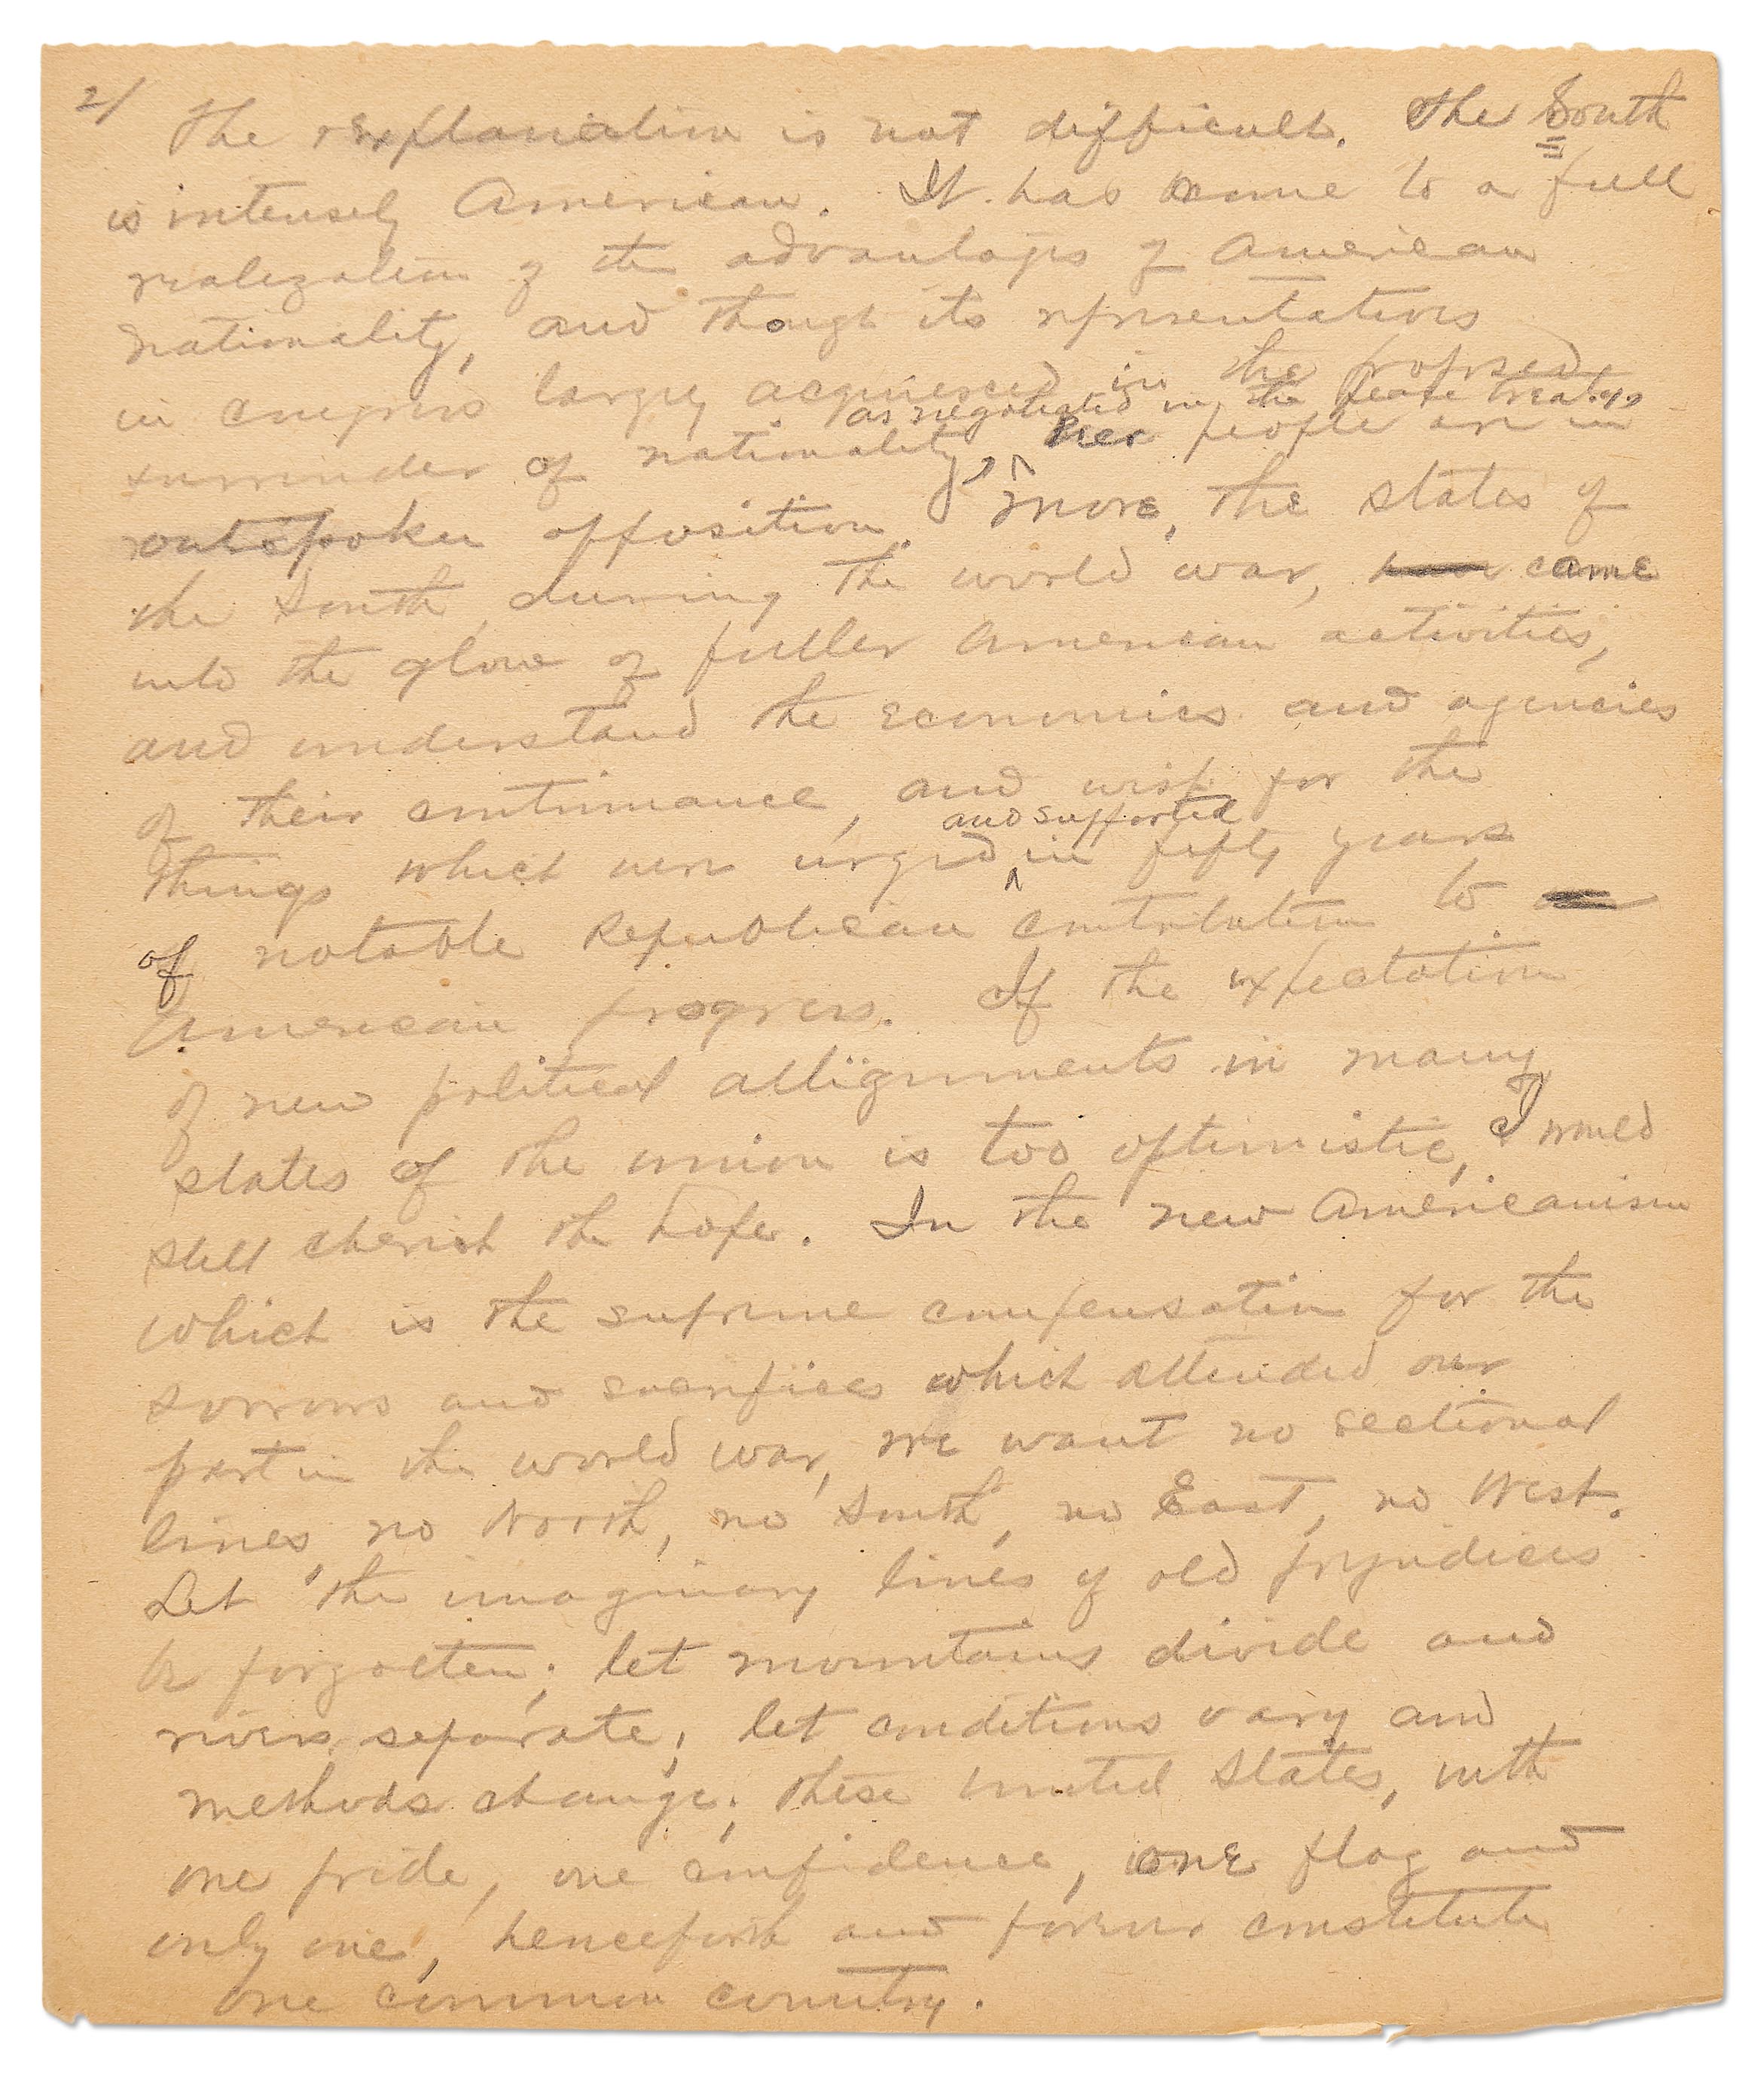 2/
The explanation is not difficult. The South
is intensely American. It has come to a full
realization of the advantages of American
nationality, and though its representatives
in congress largely acquiesced in the proposed
as negotiated in the peace treaty,
surrender of nationality, her people are in
outspoken opposition. More, the states of
the South, during the world war, came
into the glow of fuller American activities,
and understand the economics and agencies
of their continuance, and wish for the
and supported
things which were urged in fifty years
of notable Republican contribution to
American progress. If the expectation
of new political allignments in many
states of the union is too optimistic, I would
still cherish the hope. In the new Americanism
which is the supreme compensation for the
sorrows and sacrifices which attended our
part in the world war, we want no sectional
lines, no North, no South, no East, no West.
Let the imaginary lines of old prejudices
be forgotten; let mountains divide and
rivers separate; let conditions vary and
methods change; these United States, with
one pride, one confidence, one flag and
only one, henceforth and forever constitute
one common country.